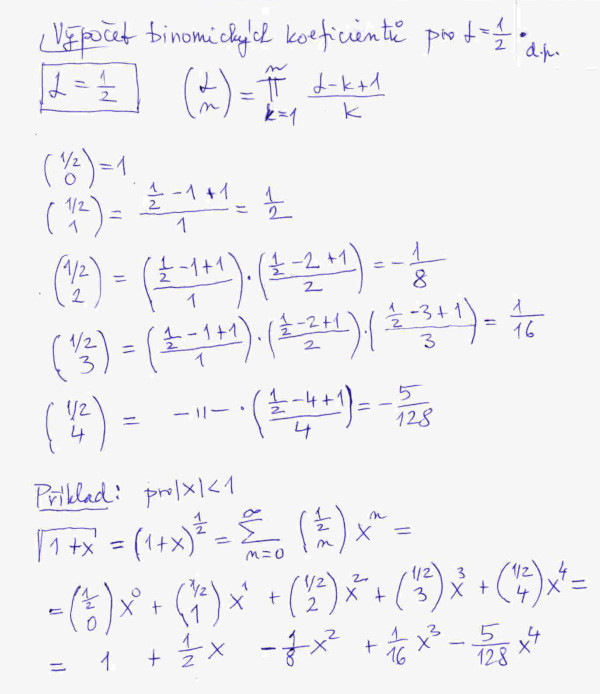 Výpočet binomických koeficientů pro α = 1/2 • d.p.
α = 1/2   (α n) = ∏_{k=1}^{n} (α-k+1)/k
(1/2 0) = 1
(1/2 1) = (1/2 -1 +1)/1 = 1/2
(1/2 2) = ((1/2 -1+1)/1) · ((1/2 -2 +1)/2) = -1/8
(1/2 3) = ((1/2 -1+1)/1) · ((1/2 -2+1)/2) · ((1/2 -3+1)/3) = 1/16
(1/2 4) = -ıı- · ((1/2 -4+1)/4) = -5/128
Příklad: pro |x| < 1
√(1+x) = (1+x)^{1/2} = ∑_{n=0}^{∞} (1/2 n) x^n =
= (1/2 0) x^0 + (1/2 1) x^1 + (1/2 2) x^2 + (1/2 3) x^3 + (1/2 4) x^4 =
= 1 + 1/2 x - 1/8 x^2 + 1/16 x^3 - 5/128 x^4